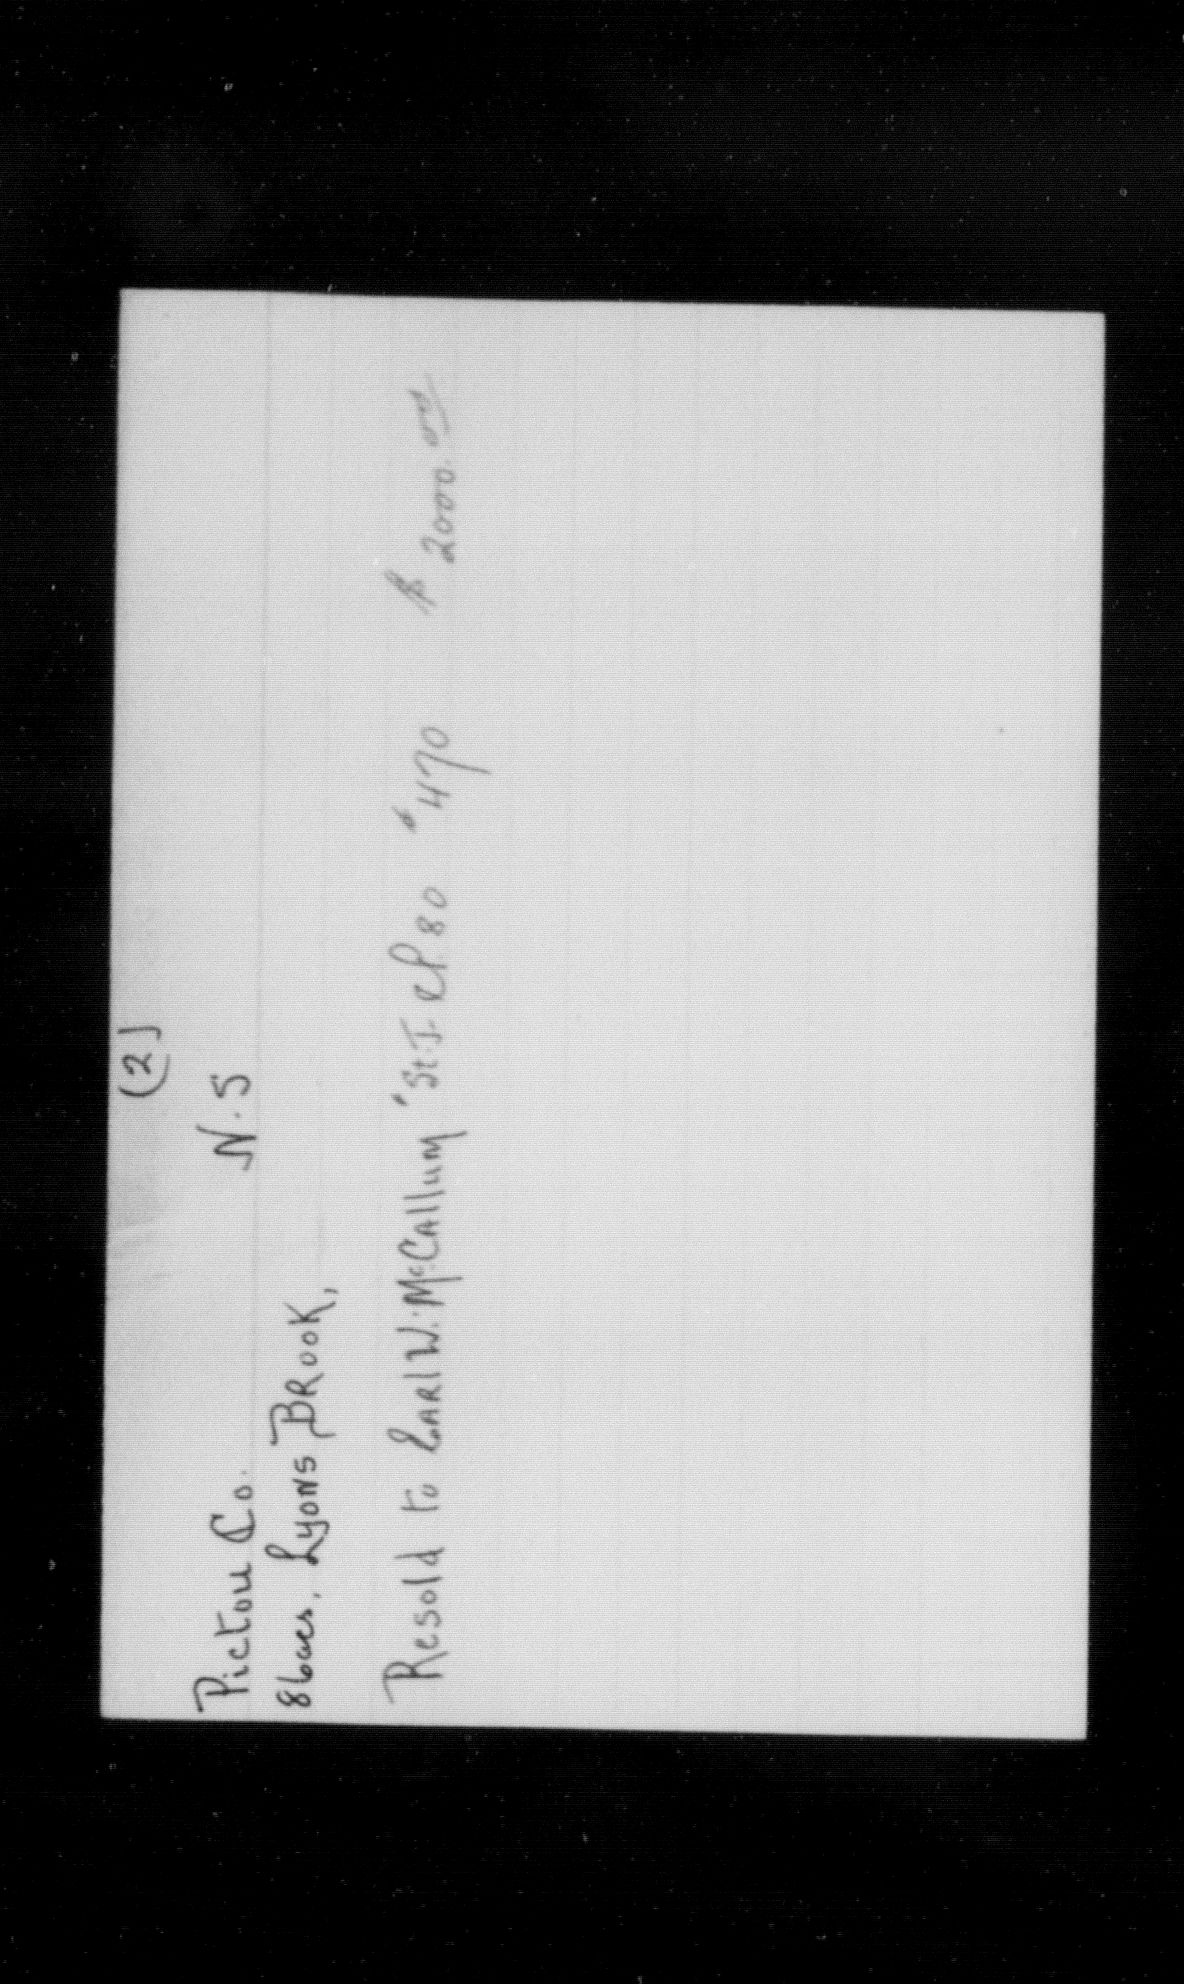 (2)
Pictou Co. N.S
86acs, Lyons Brook,
Resold to Earl W. McCallum "St. I. CP 80 $470 $2000.00